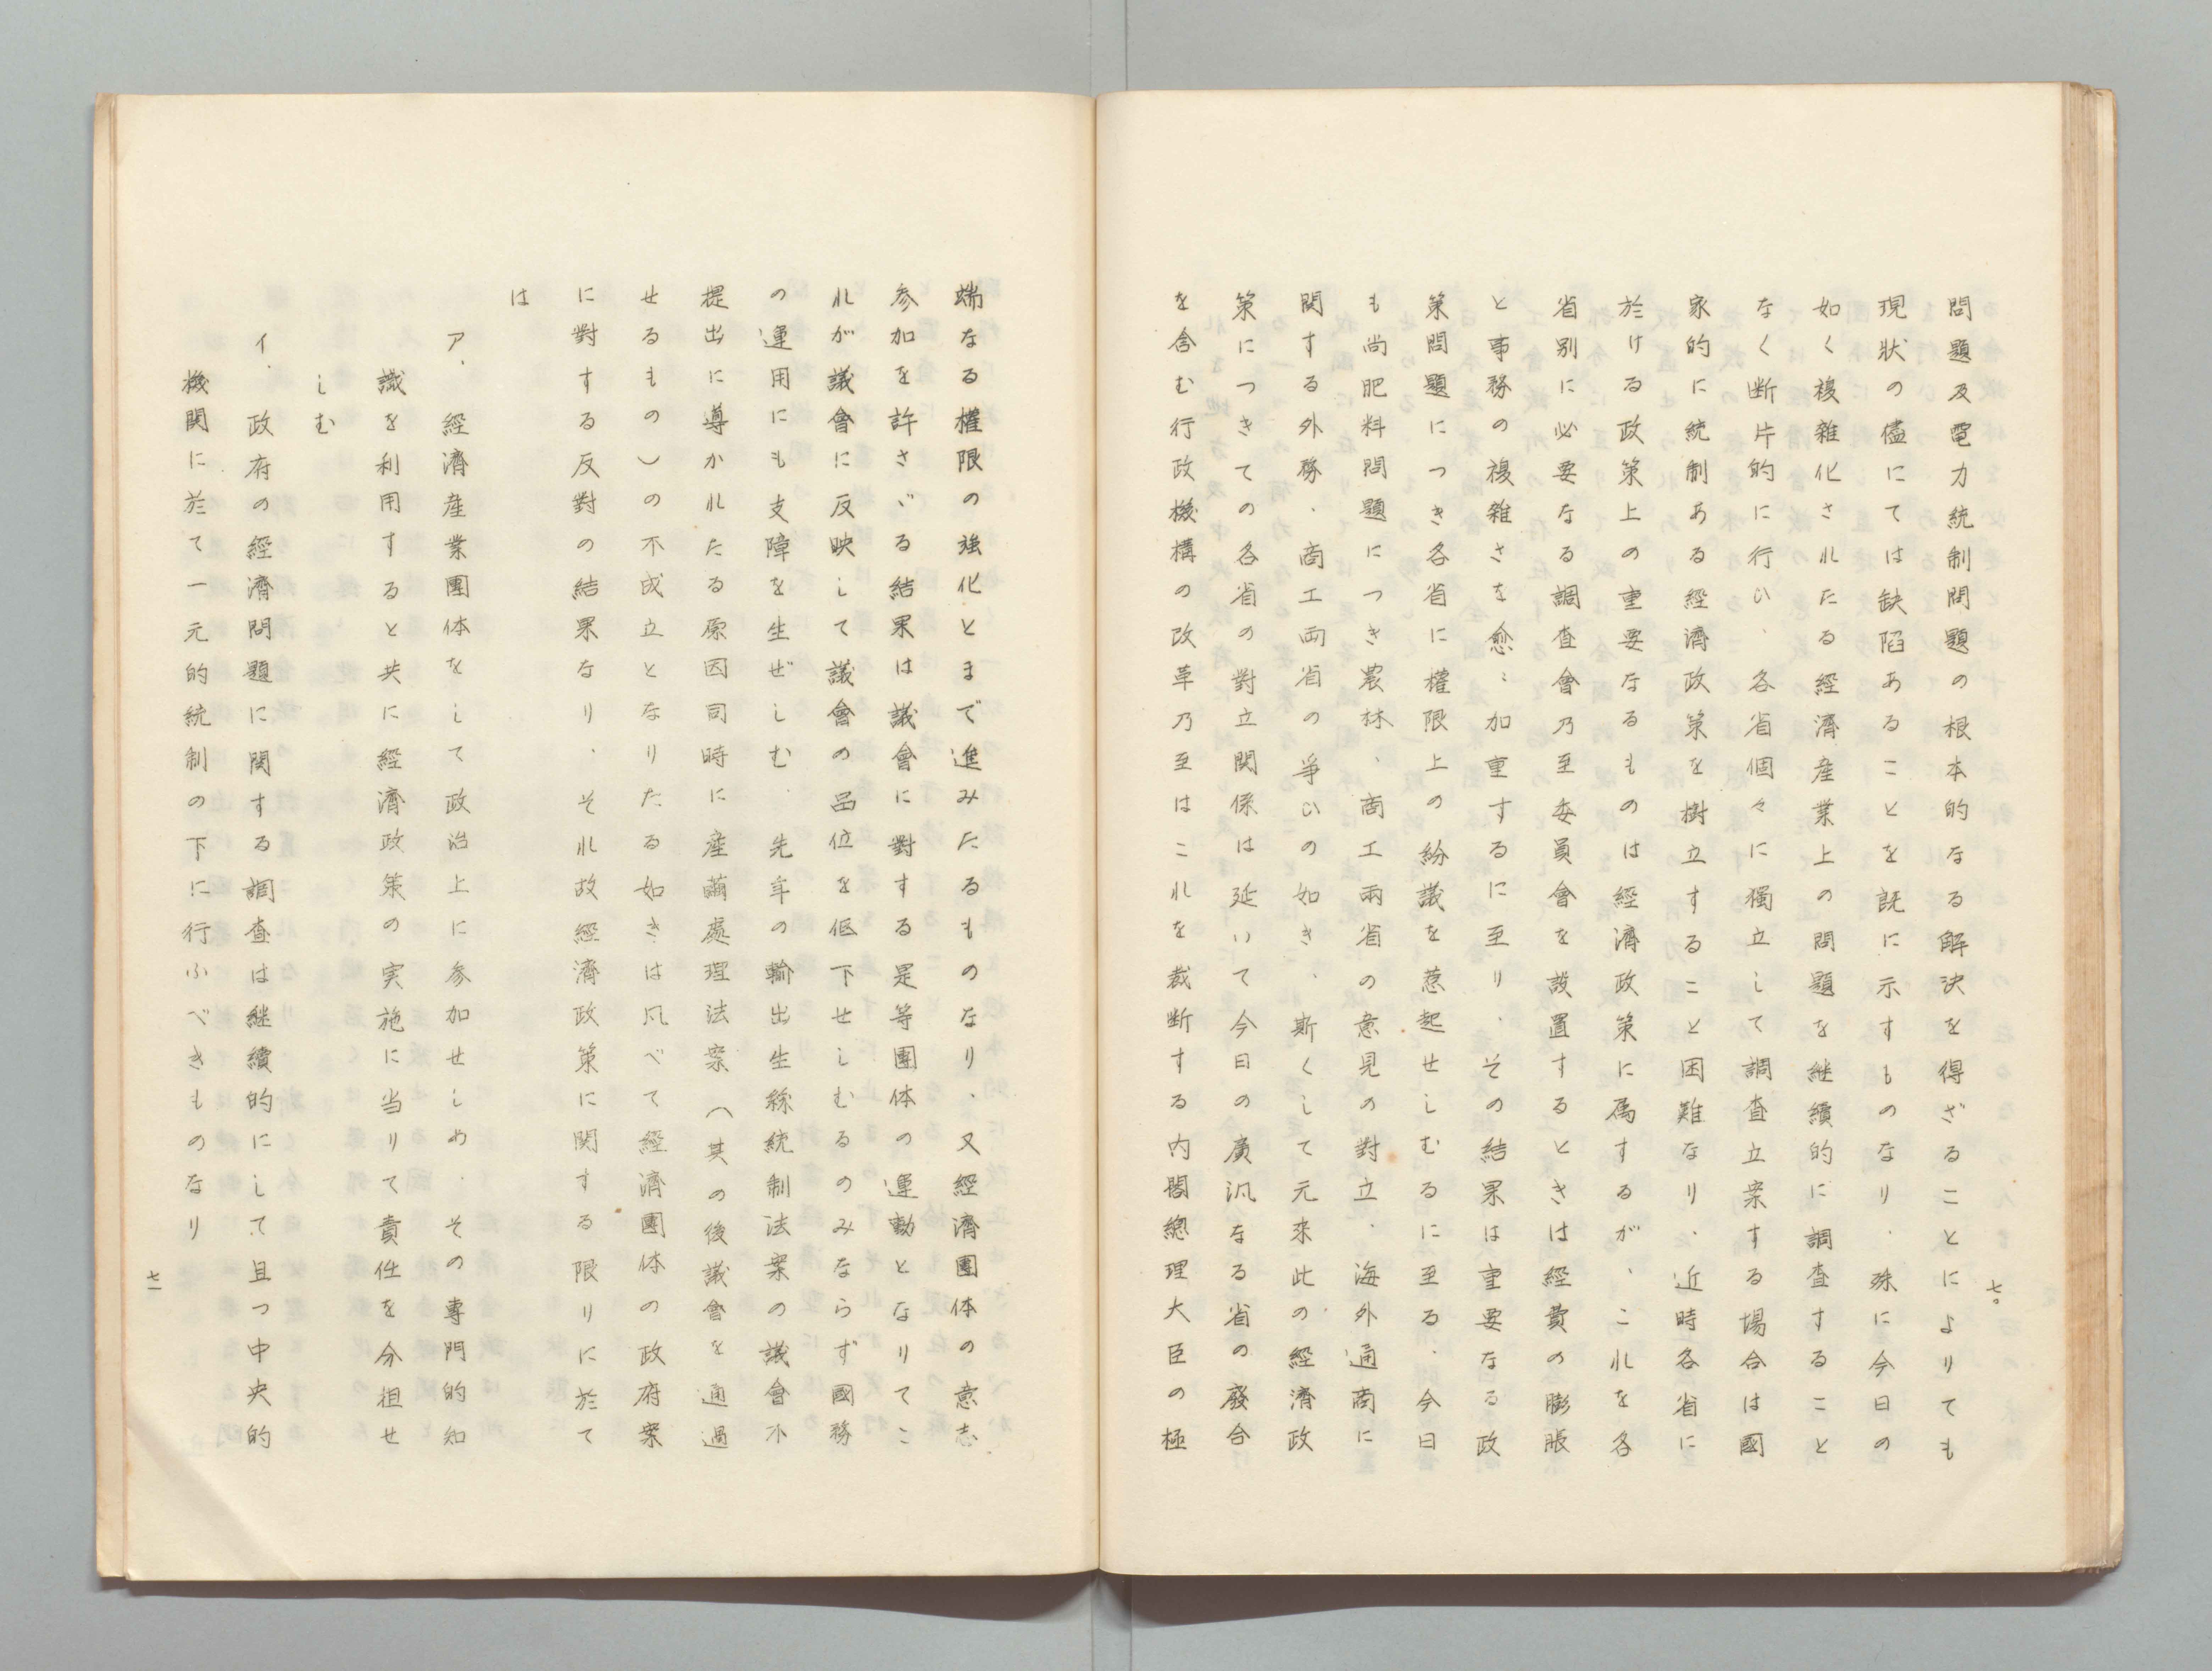 問題及電力統制問題の根本的なる解決を得ざることによりても
現狀の儘にては缺陷あることを既に示すものなり、殊に今日の
如く複雜化されたる經濟産業上の問題を継續的に調査すること
なく断片的に行ひ、各省個々に獨立して調査立案する場合は國
家的に統制ある經濟政策を樹立すること困難なり、近時各省に
於ける政策上の重要なるものは經濟政策に爲するが、これを各
省別に必要なる調査會乃至委員會を設置するときは經費の膨脹
と事務の複雜さを愈〻加重するに至り、その結果は重要なる政
策問題につき各省に權限上の紛議を惹起せしむるに至る、今日
も尚肥料問題につき農林、商工兩省の意見の對立、海外通商に
関する外務、商工両省の爭ひの如き、斯くして元來此の經濟政
策につきての各省の對立関係は延いて今日の廣汎なる省の廢合
を含む行政機構の改革乃至はこれを裁断する内閣總理大臣の極
七〇
端なる權限の強化とまで進みたるものなり、又經濟團体の意志
参加を許さゞる結果は議會に對する是等團体の運動となりてこ
れが議會に反映して議會の品位を低下せしむるのみならず國務
の運用にも支障を生ぜしむ、先年の輸出生絲統制法案の議會不
提出に導かれたる原因同時に産繭處理法案（其の後議會を通過
せるもの）の不成立となりたる如きは凡べて經濟團体の政府案
に對する反對の結果なり、それ故經濟政策に関する限りに於て
は
ア、經濟産業團体をして政治上に参加せしめ、その專門的知
識を利用すると共に經濟政策の実施に当りて責任を分担せ
しむ
イ、政府の經濟問題に関する調査は継續的にして且つ中央的
機関に於て一元的統制の下に行ふべきものなり
七一